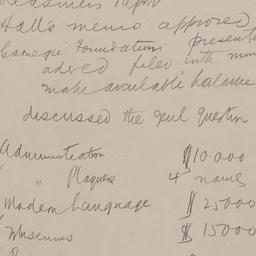 Report
Hall's memo approved
Carnegie Foundation presente
filed into min
make available balance
discussed the genl question
Administration $10.000
" Plaques 4 names
Modern Language $25000
Museums $15000